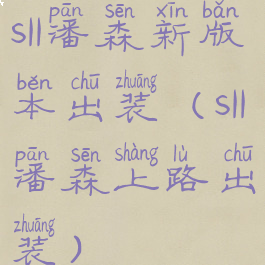 pān sēn xīn bǎn
sll潘森新版
běn chū zhuāng
本出装(sll
pān sēn shàng lù chū
潘森上路出
zhuāng
装)